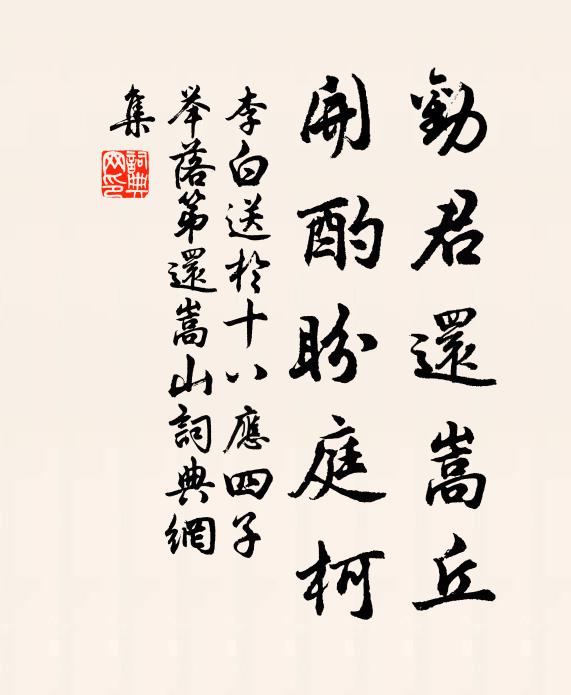 勸君還嵩丘
開酌盼庭柯
李白送於十八應四子
举落第還嵩山詞典網
集
詞典
网印